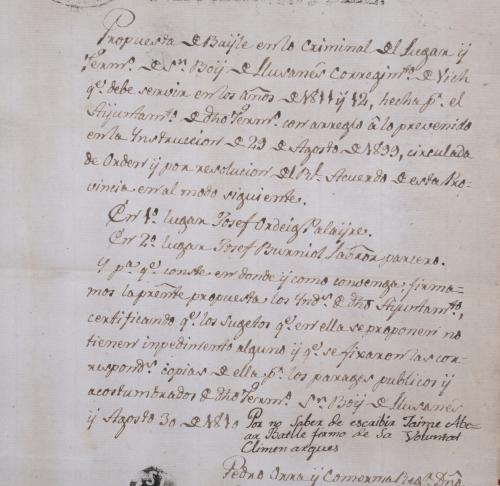 Propuesta de Bayle en lo Criminal del Lugar y
Term.o de S.n Boy de Llusanés Corregim.to de Vich
q.e debe servir en los años de 1811 y 12, hecha p.r el
Ayuntam.to de dho Term.o con arreglo â lo prevenido
en la Instruccion de 29 de Agosto de 1799, circulada
de Orden y por resolucion del R.l Acuerdo de esta Pro-
vincia en al modo siguiente.
En 1.o lugar Josef Ordeig Palayre.
En 2.o lugar Josef Burniol Labrador parcero.
Y p.a q.e conste en donde y como convenga; firma-
mos la pr̃ente propuesta los Ind.s de dho Ayuntam.to,
certificando q.e los Sugetos q.e en ella se proponen no
tienen impedimento alguno y q.e se fixaron las cor-
respond.s copias de ella p.r los parages publicos y
acostumbrados de dho Term.o S.n Boy de Llusanés
y Agosto 30 de 1810
Por no saber de escribir Jaime
Batlle firmo de Sa Voluntat
Climen arques
Pedro y Comerma